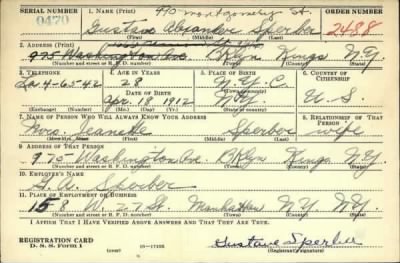 SERIAL NUMBER 1. NAME (Print) 990 Montgomery St. ORDER NUMBER
0470 Gustave Alexander Sperber 2488
(First) (Middle) (Last)
2. ADDRESS (Print)
975 Washington Ave Bklyn Kings N.Y.
(Number and street or R. F. D. number) (Town) (County) (State)
3. TELEPHONE 4. AGE IN YEARS 5. PLACE OF BIRTH 6. COUNTRY OF CITIZENSHIP
4-6542 28 N.Y.C.
DATE OF BIRTH (Town or county)
Apr. 18 1912 N.Y. U.S.
(Exchange) (Number) (Mo.) (Day) (Yr.) (State or country)
7. NAME OF PERSON WHO WILL ALWAYS KNOW YOUR ADDRESS 8. RELATIONSHIP OF THAT PERSON
Mrs. Jeanette Sperber wife
(Mr., Mrs., Miss) (First) (Middle) (Last)
9. ADDRESS OF THAT PERSON
975 Washington Ave. Bklyn Kings N.Y.
(Number and street or R. F. D. number) (Town) (County) (State)
10. EMPLOYER'S NAME
G. A. Sperber
11. PLACE OF EMPLOYMENT OR BUSINESS
158 W. 27 St. Manhattan N.Y. N.Y.
(Number and street or R. F. D. number) (Town) (County) (State)
I AFFIRM THAT I HAVE VERIFIED ABOVE ANSWERS AND THAT THEY ARE TRUE.
REGISTRATION CARD
D. S. S. Form 1 (over) 16-17105 Gustave Sperber
(Registrant's signature)